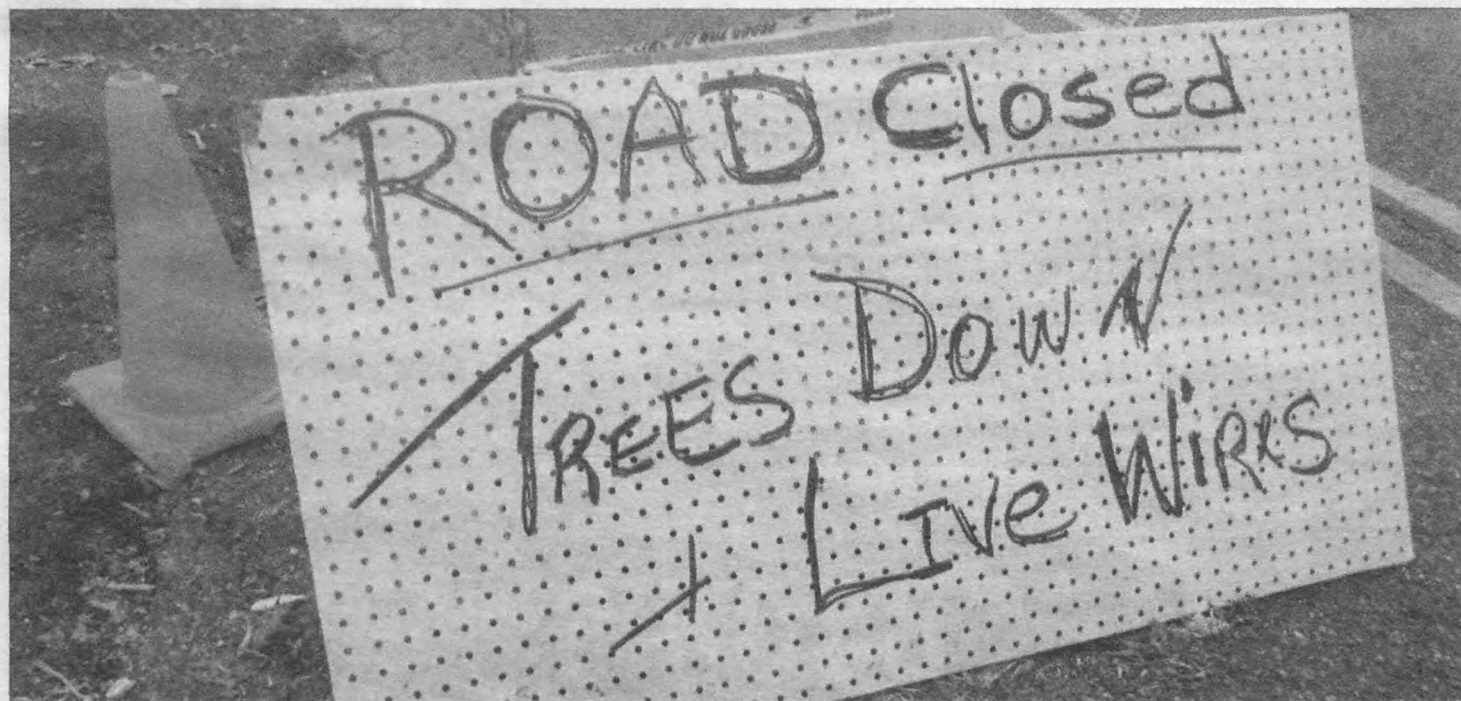 ROAD Closed
TREES DOWN
+ LIVe WIRES